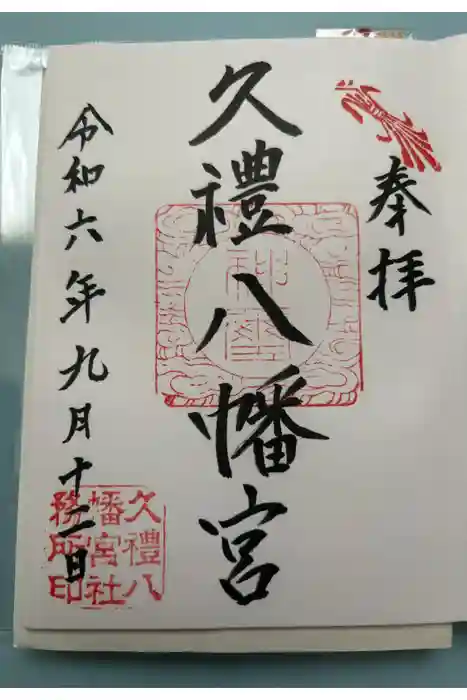 奉拝
久禮八幡宮
令和六年九月十二日
久禮八
幡宮社
務所印